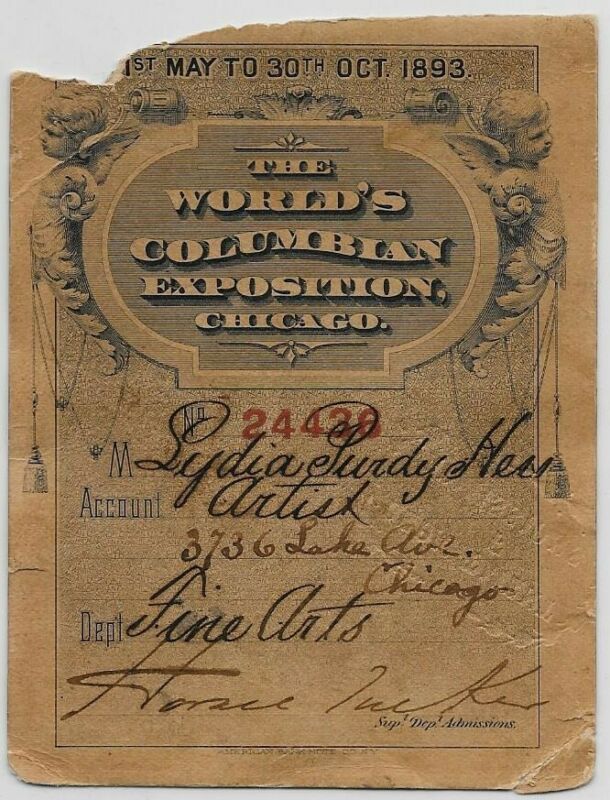 1ST MAY TO 30TH OCT. 1893.
THE
WORLD'S
COLUMBIAN
EXPOSITION,
CHICAGO.
No. 24428
M Lydia Purdy Hess
Account Artist
3736 Lake Ave.
Chicago
Dept Fine Arts
Horace Tucker
Supt. Dept. Admissions.
AMERICAN BANK NOTE CO. N.Y.